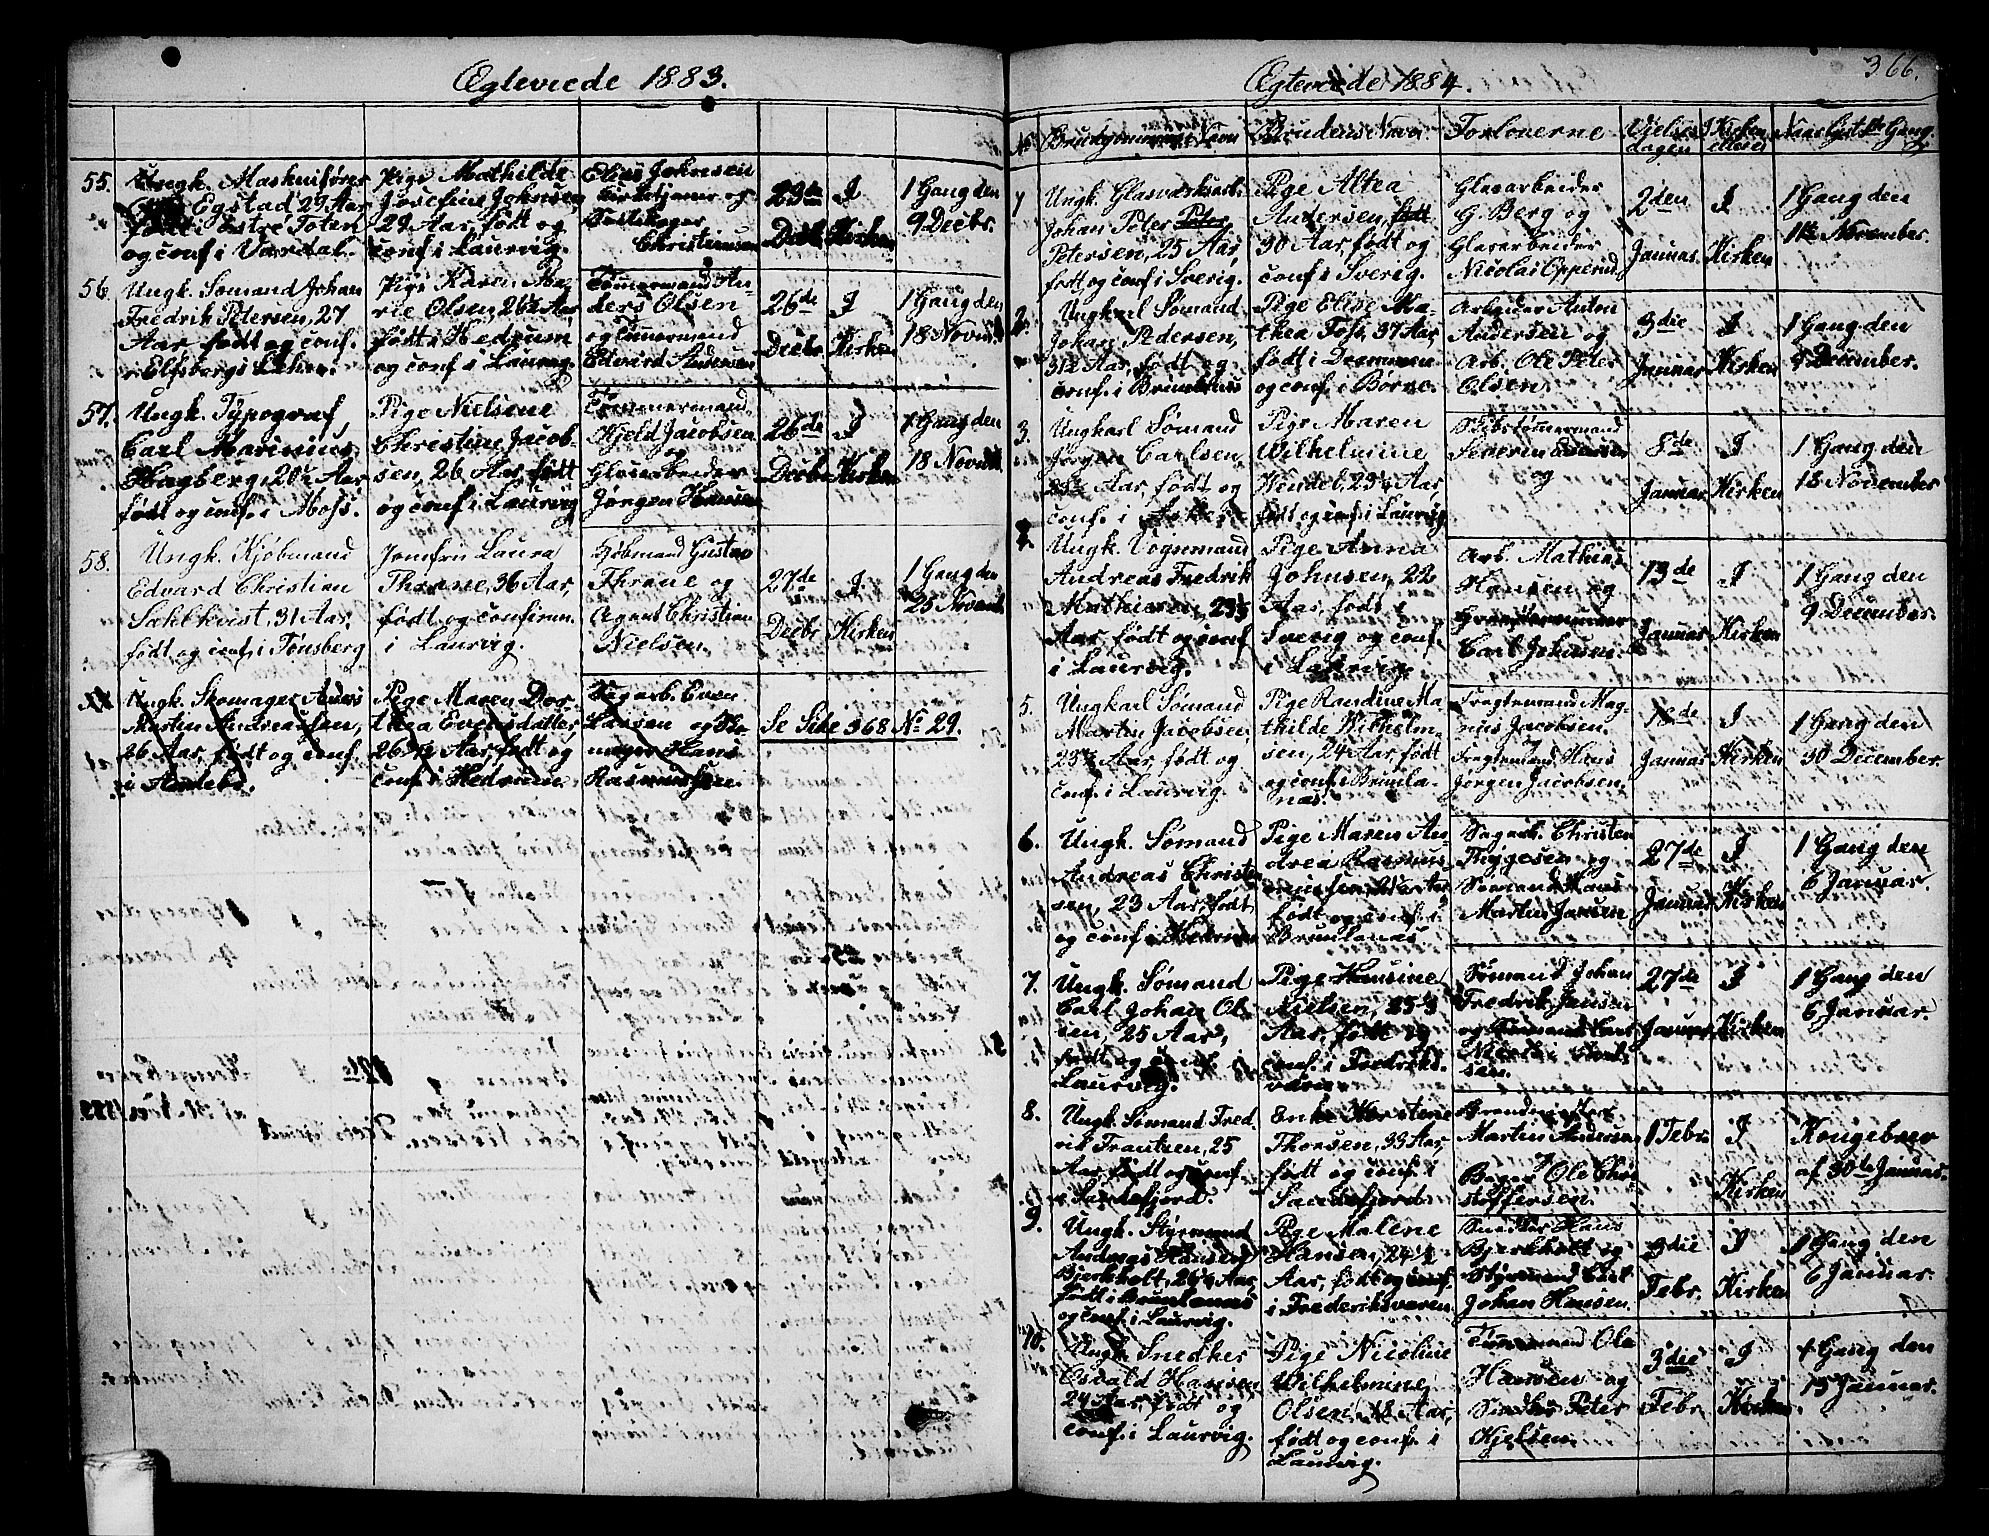 Ægteviede 1883.
55.
Ungk. Maskinifører
Egstad 29 Aar
født i Østre Toten
og conf. i Vardal.
Pige Mathilde
Josefine Johnsen
29 Aar, født og
conf. i Laurvig.
Elias Johnsen
Kirketjener og
Christiansen
29de
Decbr
I
Kirken
1 Gang den
9 Decbr.
56.
Ungk. Sømand Johan
Fredrik Petersen, 27
Aar, født og conf.
i Elfsborgs Lehn.
Pige Karen Ma-
rie Olsen, 26½ Aar,
født i Hedrum
og conf. i Laurvig.
Tømmermand An-
ders Olsen
og Tømmermand
Edvard Andersen
26de
Decbr
I
Kirken
1 Gang den
18 Novmb
57.
Ungk. Typograf,
Carl Marinius
Hagberg, 20½ Aar
født og conf. i Moss.
Pige Nielsine
Christine Jacob-
sen, 26 Aar, født
og conf. i Laurvig
Tømmermand
Kjeld Jacobsen
og
Glasarbeider
Jørgen Hansen
26de
Decbr
I
Kirken
1 Gang den
18 Novmb
58.
Ungk. Kjøbmand
Edvard Christian
Sahlkvist, 31 Aar,
født og conf. i Tønsberg
Jomfru Laura
Thrane, 36 Aar,
født og confirm.
i Laurvig.
Kjøbmand Gustav
Thrane og
Agent Christian
Nielsen.
27de
Decbr
I
Kirken
1 Gang den
25 Novmb
Ungk. Skomager Anders
Martin Andreassen,
26 Aar, født og conf
i Andebo.
Pige Maren Dor-
thea Evensdatter,
26 7/12 Aar, født og
conf. i Hedrum.
Sagarb. Even
Larsen og Sko-
mager Hans
Rasmussen.
Se Side 368 No 29.
Ægteviede 1884.
366.
No
Brudgommens Navn
Brudens Navn
Forloverne
Vielses
dagen
I Kirken
ellers
Naar lyst 1ste Gang.
1
Ungk. Glasværksarb.
Johan Peter Peter
Petersen, 25 Aar,
født og conf. i Sverig.
Pige Altea
Andersen, født
30 Aar, født og
conf. i Sverig.
Glasarbeider
G. Berg og
Glasarbeider
Nicolai Opperud.
2den
Januar
I
Kirken
1 Gang den
11te November.
2.
Ungkarl Sømand
Johan Pedersen,
31½ Aar, født og
conf. i Brunlanæs
Pige Elise Ma-
thea Foss, 37 Aar,
født i Drammen
og conf. i Borre.
Arbeider Anton
Andersen og
Arb. Ole Peter
Olsen.
3die
Januar
I
Kirken
1 Gang den
9 December.
3.
Ungkarl Sømand
Jørgen Carlsen,
Aar, født og
conf. i
Pige Maren
Wilhelmine
Wendel, 23¼ Aar,
født og conf. i Laurvig
Skibstømmermand
Severin
og
8de
Januar
I
Kirken
1 Gang den
18 November
4.
Ungk. Vognmand
Andreas Fredrik
Mathisen, 23½
Aar, født og conf
i Laurvig.
Pige Anna
Johnsen, 22
Aar, født i
Sverig og conf.
i Laurvig.
Arb. Mathias
Hansen og
Carl Johnsen.
13de
Januar
I
Kirken
1 Gang den
9 December.
5.
Ungkarl Sømand
Martin Jacobsen,
23½ Aar, født og
conf. i Laurvig.
Pige Randine Ma-
thilde Wilhelm-
sen, 24 Aar, født
og conf. i Brunla-
næs.
Fragtemand Mag-
nus Jacobsen.
Fragtemand Hans
Jørgen Jacobsen.
18de
Januar
I
Kirken
1 Gang den
30 December.
6.
Ungk. Sømand
Andreas Christen
sen, 23 Aar, født
og conf. i Hedrum
Pige Maren An-
drea Rasmus-
født og conf. i
Brunlanæs
Sagarb. Christen
Thygesen og
Sømand Hans
Martin Jansen
27de
Januar
I
Kirken
1 Gang den
6 Januar.
7.
Ungk. Sømand
Carl Johan Ol-
sen, 25 Aar,
født og conf.
Laurvig.
Pige Hansine
Nielsen, 25½
Aar, født og
conf. i Fredriks-
værn
Sømand Johan
Fredrik Jansen
og Sømand Carl
sen.
27de
Januar
I
Kirken
1 Gang den
6 Januar.
8.
Ungk. Sømand Fred-
rik Frantzen, 25
Aar, født og conf.
i Sandefjord.
Enke Karstene
Thorsen, 33 Aar,
født og conf. i
Sandefjord.
Brandmester
Martin Andersen
og
Bager Ole Chri-
stoffersen.
1 Febr.
I
Kirken
Kongebrev
af 30te Januar.
9.
Ungk. Styrmand
Andreas Hansen
Bjerkholt, 26¼ Aar,
født i Brunlanæs
og conf. i Laurvig.
Pige Malene
Hansen, 24½
Aar, født og conf.
i Frederiksværn
Snedker Hans
Bjerkholt og
Styrmand Carl
Johan Hansen.
3die
Febr.
I
Kirken
1 Gang den
6 Januar.
10.
Ungk. Snedker
Osvald Hansen
24 Aar, født og
conf. i Laurvig.
Pige Nicoline
Wilhelmine
Olsen, 18 Aar,
født og conf. i
Laurvig.
Tømmermand Ole
Hansen og
Snedker Peter
Kjelsen.
3die
Febr.
I
Kirken
1 Gang den
13 Januar.